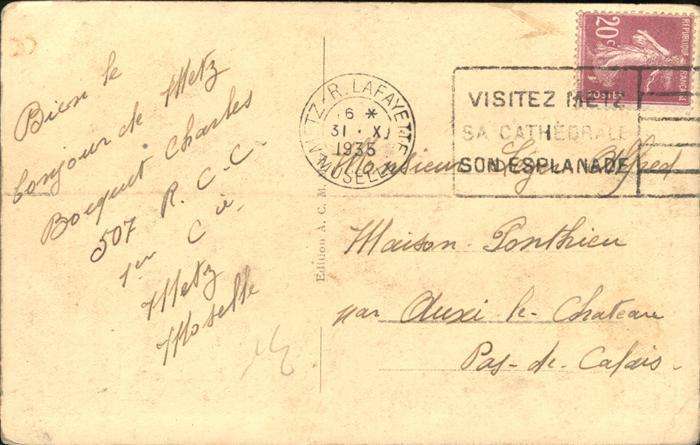 Bien le
bonjour de Metz
Bocquet Charles
507 R. C. C.
1er Cie
Metz
Moselle
Edition A. C. M.
METZ-R. LAFAYETTE
6 *
31 · XI
1935
MOSELLE
VISITEZ METZ
SA CATHÉDRALE
SON ESPLANADE
20c
REPUBLIQUE FRANÇAISE
POSTES
Monsieur Alfred
Maison Ponthieu
par Auxi-le-Chateau
Pas-de-Calais